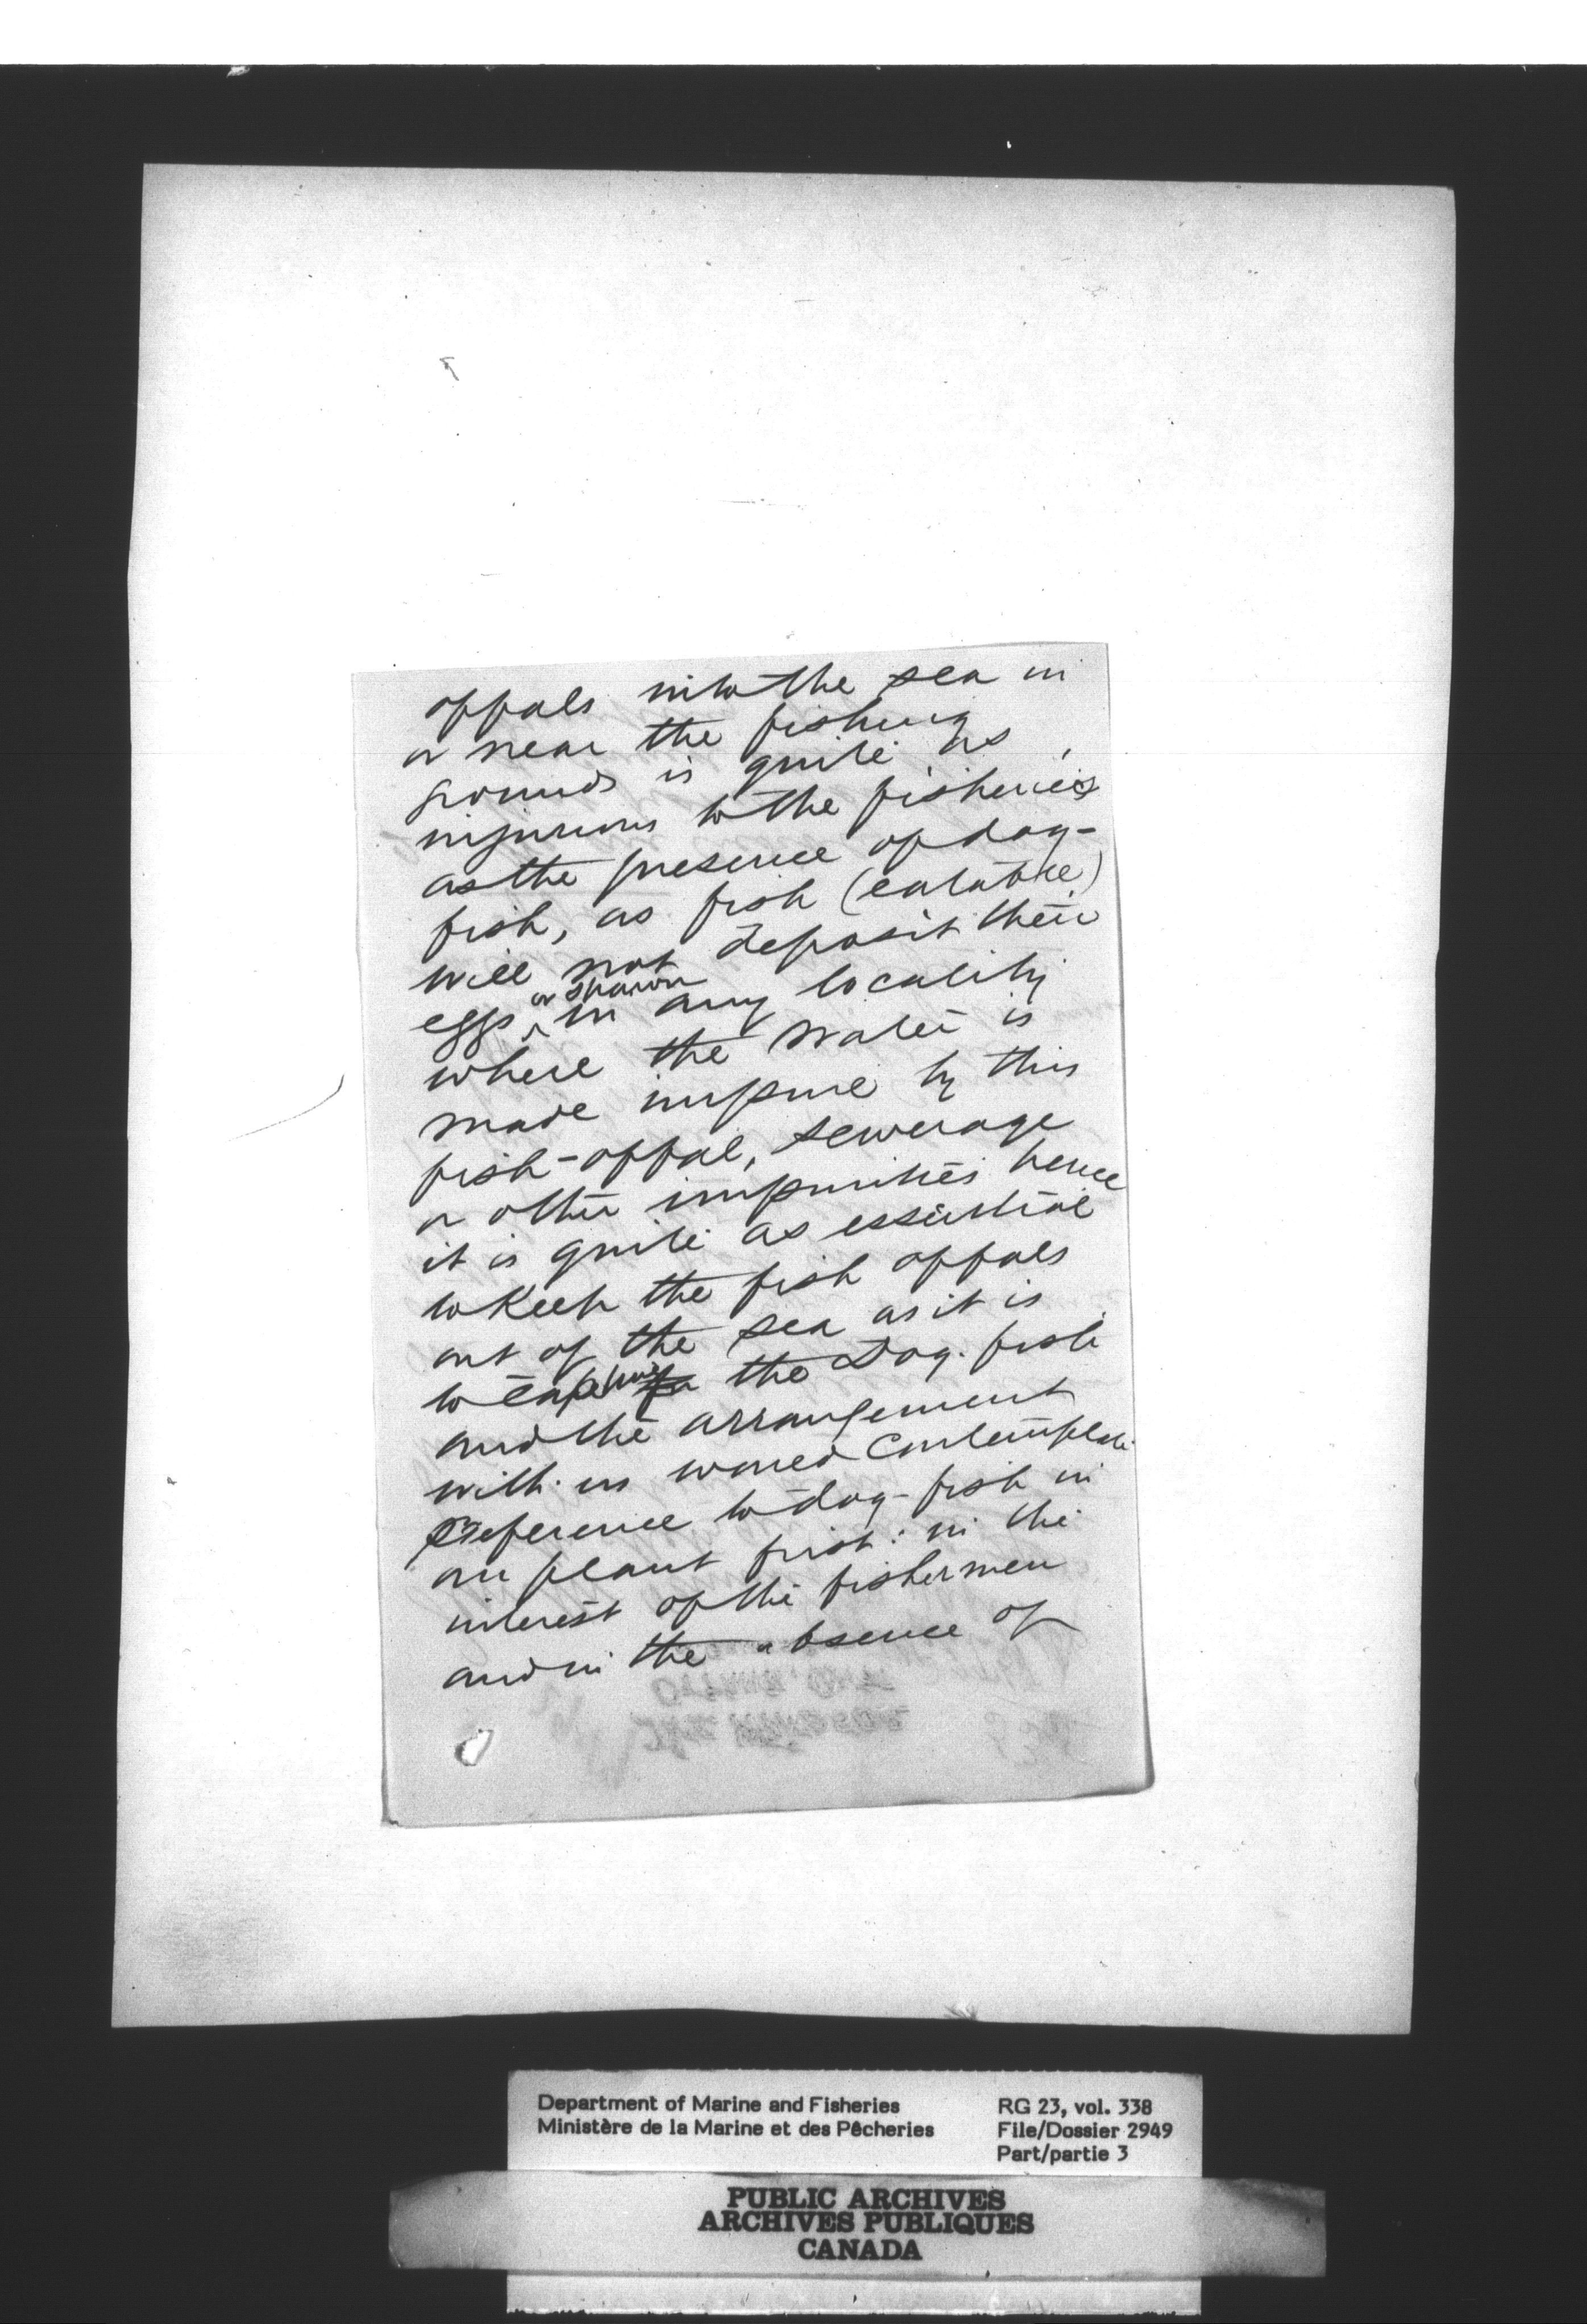 offals into the sea in
or near the fishing
grounds is quite as
injurious to the fisheries
as the presence of dog-
fish, as fish (eatable)
will not deposit their
or spawn
eggs ^ in any locality
where the water is
made impure by this
fish-offal, sewerage
or other impurities hence
it is quite as essential
to keep the fish offals
out of the sea as it is
to capture the Dog-fish
and the arrangement
with us would contemplate
reference to dog-fish in
our plant first: in the
interest of the fishermen
and in the absence of
Department of Marine and Fisheries
Ministère de la Marine et des Pêcheries
RG 23, vol. 338
File/Dossier 2949
Part/partie 3
PUBLIC ARCHIVES
ARCHIVES PUBLIQUES
CANADA